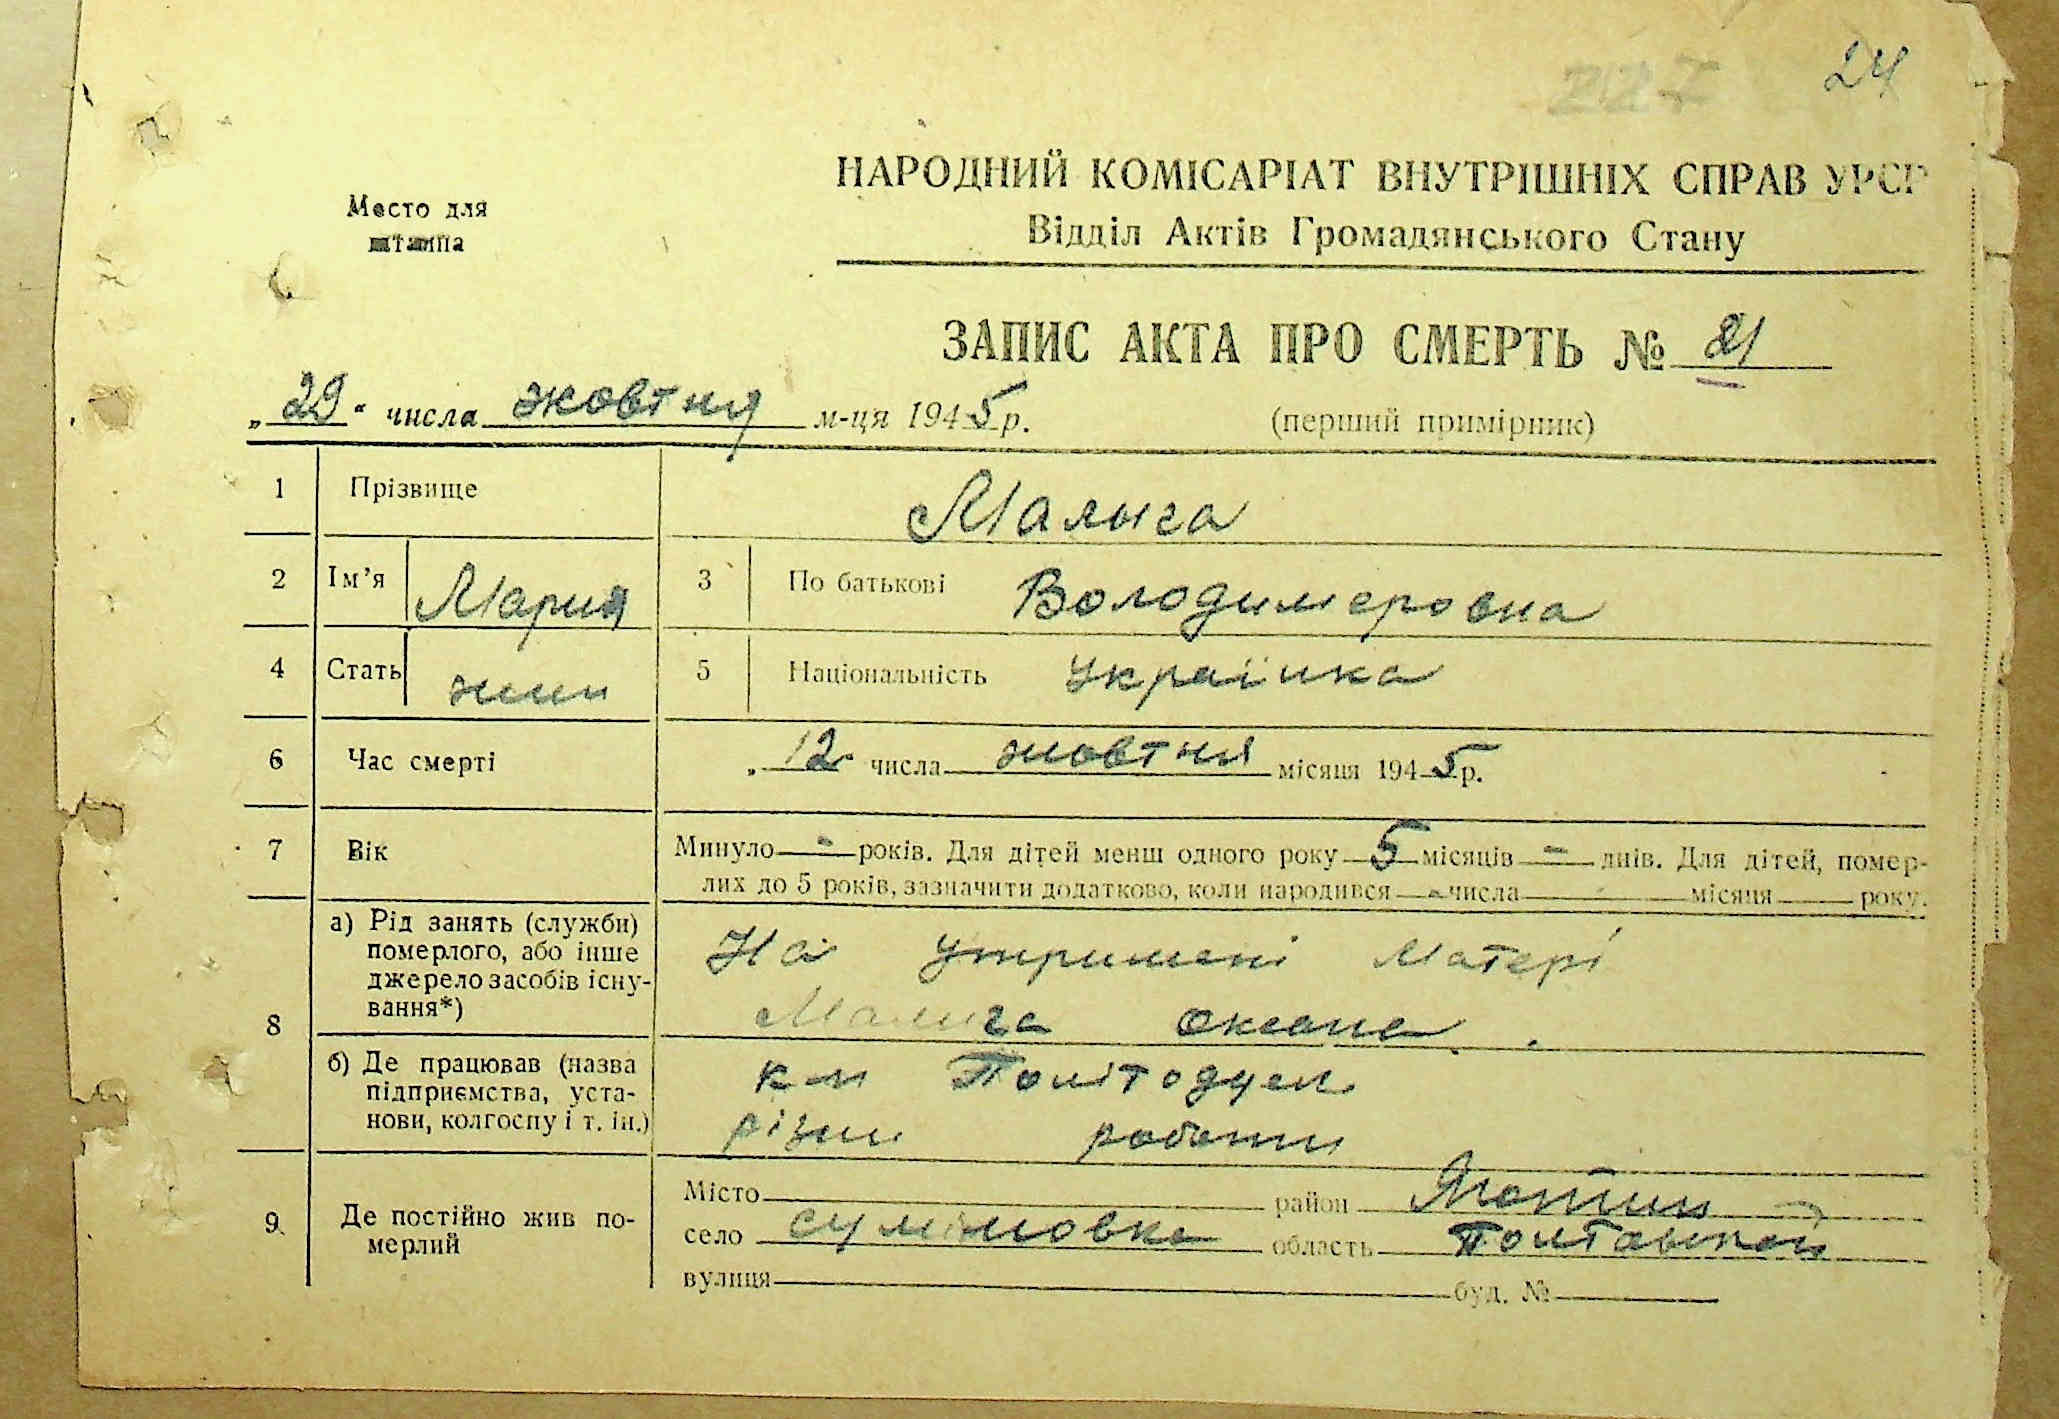 24
227
Место для
штампа
НАРОДНИЙ КОМІСАРІАТ ВНУТРІШНІХ СПРАВ УРСР
Відділ Актів Громадянського Стану
ЗАПИС АКТА ПРО СМЕРТЬ № 21
„29“ числа жовтня м-ця 1945 р.
(перший примірник)
1 Прізвище Малыга
2 Ім’я Мария 3 По батькові Володимеровна
4 Стать жин 5 Національність українка
6 Час смерті „12 числа жовтня місяця 1945 р.
7 Вік Минуло - років. Для дітей менш одного року 5 місяців - днів. Для дітей, помер-
лих до 5 років, зазначити додатково, коли народився - числа місяця року.
8 а) Рід занять (служби)
померлого, або інше
джерело засобів існу-
вання*)
На утримені матері
Малыга Оксана.
б) Де працював (назва
підприємства, уста-
нови, колгоспу і т. ін.)
к-п Політодчел
різни работи
9. Де постійно жив по-
мерлий
Місто район Яготин
село сулимовка область Полтавской
вулиця буд. №